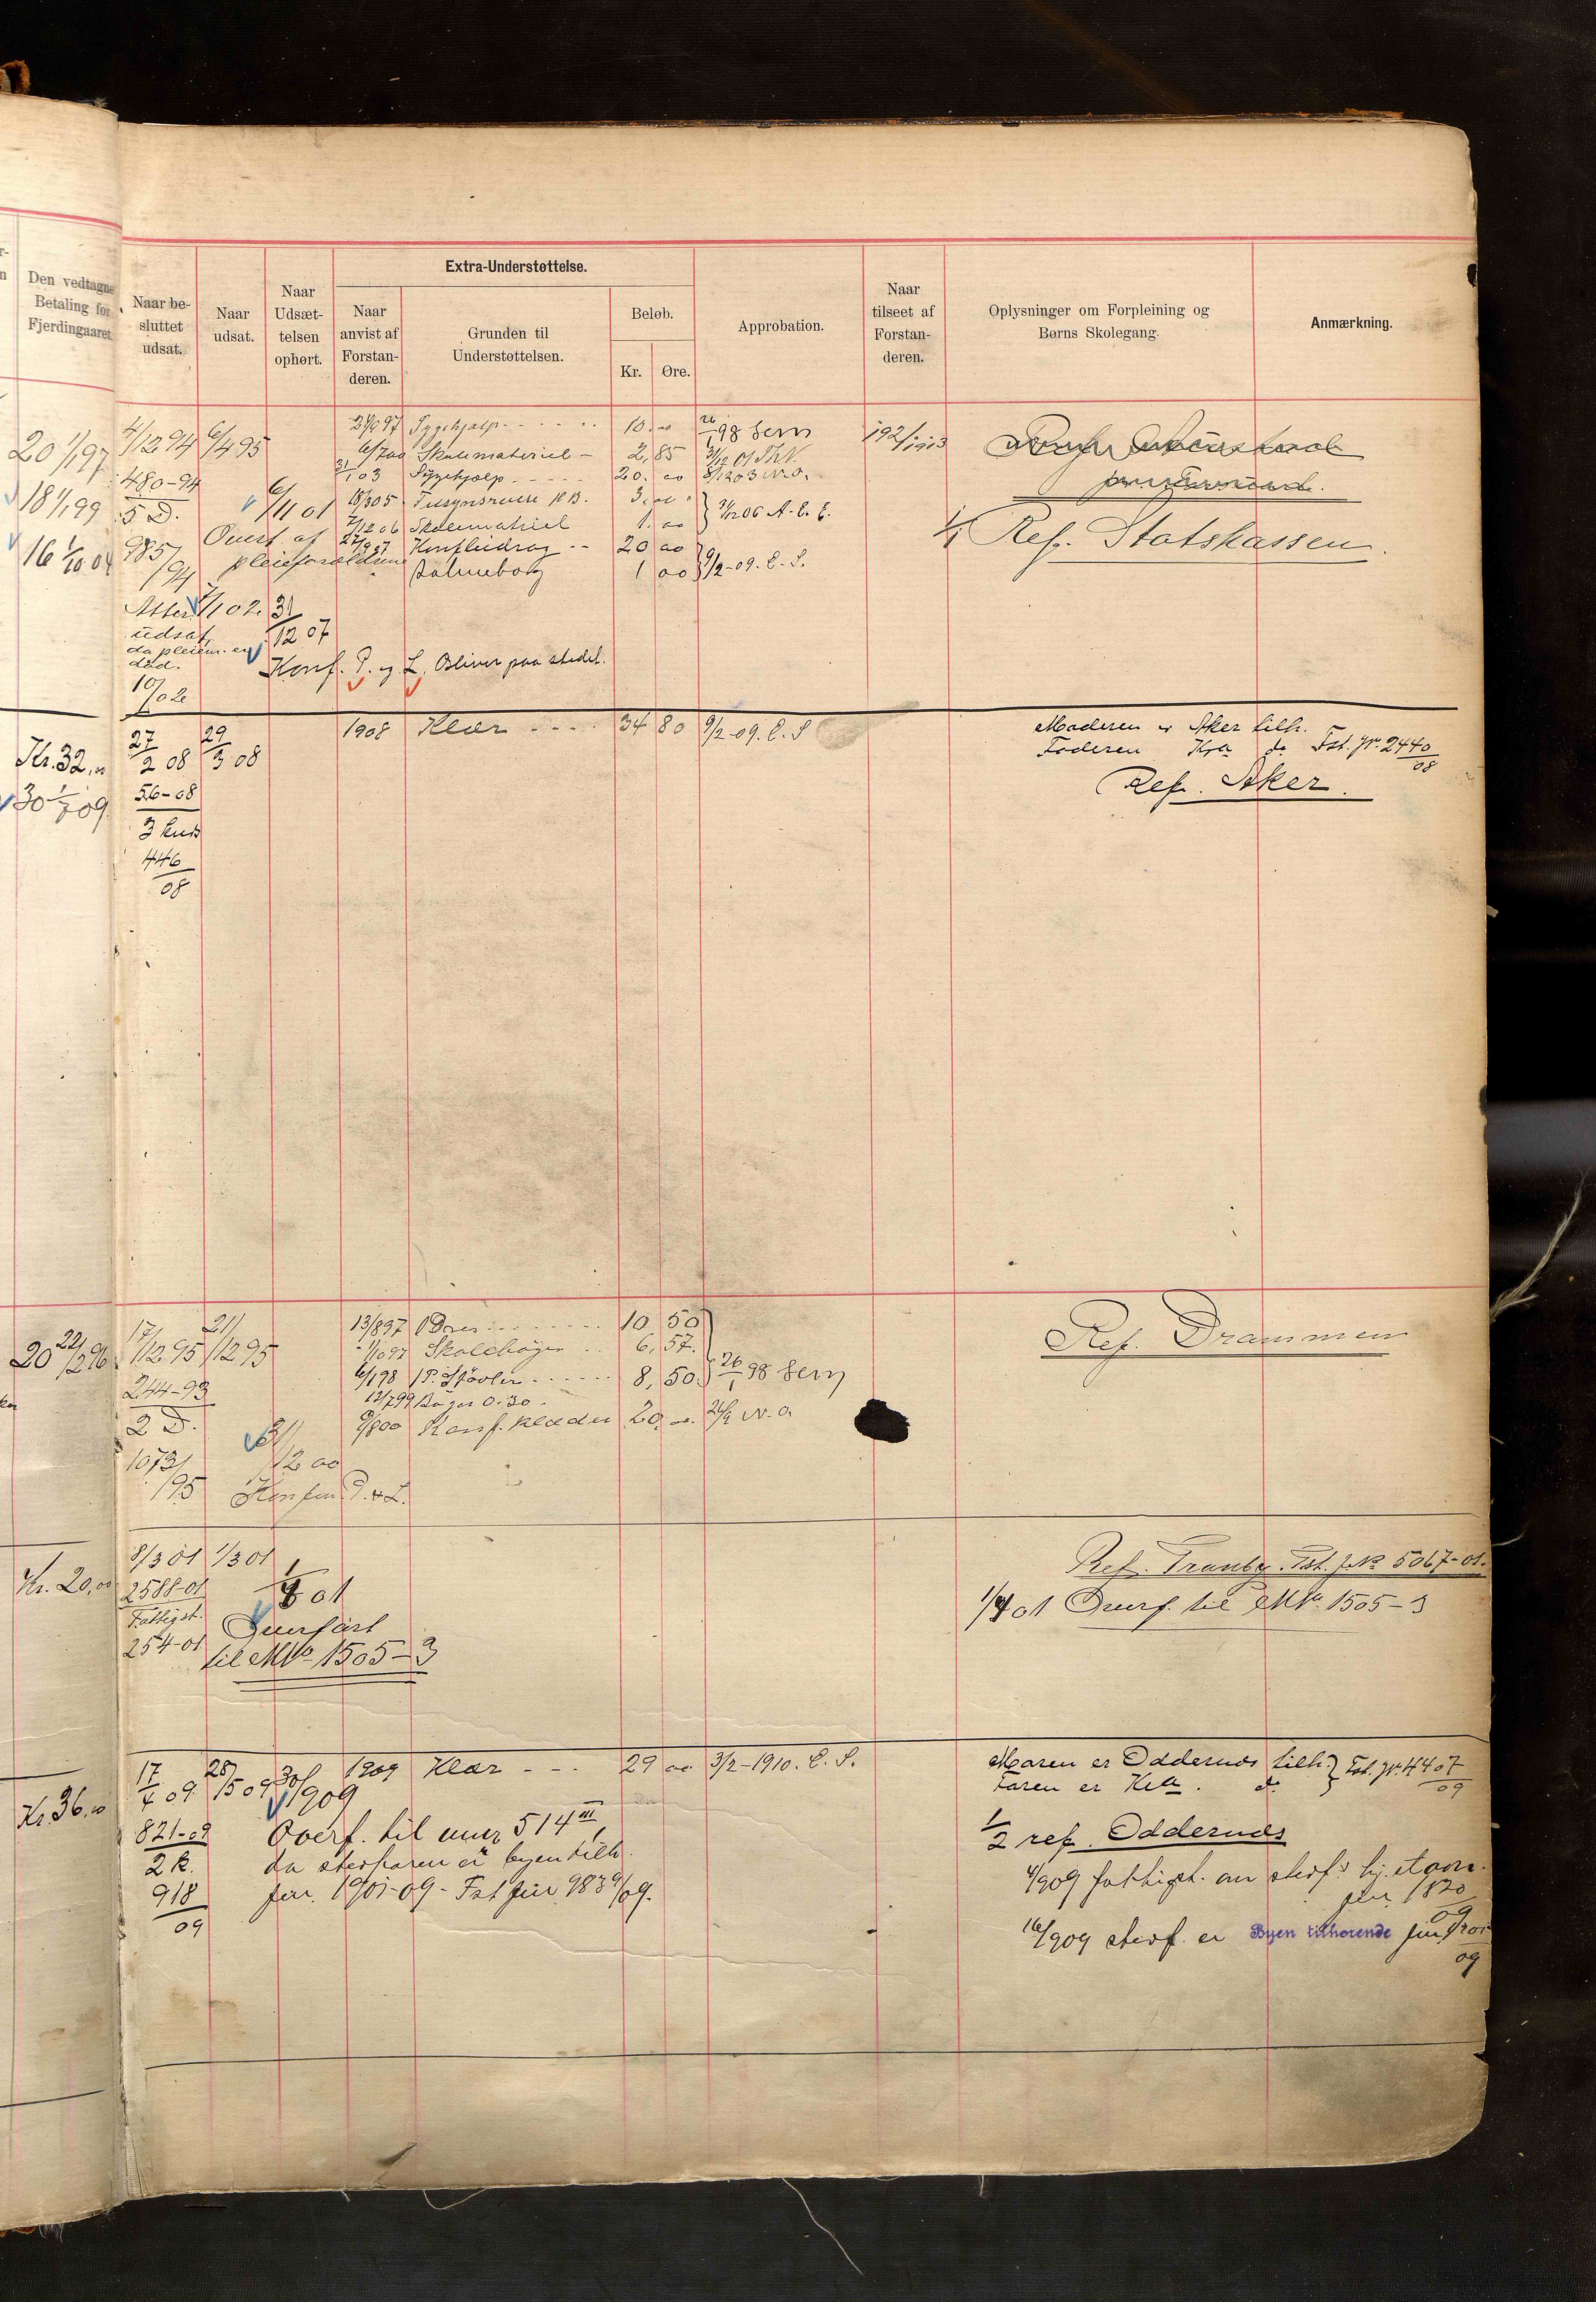 Den vedtagne
Betaling for
Fjerdingaaret
Naar be-
sluttet
udsat.
Naar
udsat.
Naar
Udsæt-
telsen
ophørt.
Extra-Understøttelse.
Naar
anvist af
Forstan-
deren.
Grunden til
Understøttelsen.
Beløb.
Kr. Øre.
Approbation.
Naar
tilseet af
Forstan-
deren.
Oplysninger om Forpleining og
Børns Skolegang.
Anmærkning.
20 1/1 97
18 1/1 99
16 1/10 04
4/12 94 6/4 95
480-94
5 D.
985/94
6/11 01
Overt. af
pleieforældrene
Atter 7/1 02.
udsat,
da pleiem. er
død.
10/1 02
31/12 07
Konf. P. og L. Bliver paa stedet.
Sygehjælp 10.00
6/7 00 Skolemateriel - 2,85
31/1 03 Sygehjælp 20.00
18/3 05 3.00
7/12 06 Skolemateriel 1.00
27/9 07 20 00
Salmebog 1 00
26/1 98
31/12 01
8/12 03 N.O.
31/12 06 A. C. E.
9/2-09. C. S.
1/1 Ref. Statskassen.
Kr. 32,00
30 1/7 09.
27/2 08 29/3 08
56-08
446/08
1908 Klær 34 80 9/2-09. C. S
Moderen er Aker tilh.
Faderen Kra do Fst. Jr. 2440/08
Ref. Aker.
20 22/12 96
17/12 95 21/12 95
244-93
2 D.
1073/95
31/12 00
P. & L.
13/8 97 10 50
1/10 97 Skolebøger 6,57.
6/1 98 1 P. Støvler 8,50
12/7 99 Bøger 0.30
9/8 00 Konf. klæder 20.00
26/1 98
N. O.
Ref. Drammen
Kr. 20,00
8/3 01 1/3 01
2588-01
Fattigst.
254-01
1/4 01
Overført
til M No 1505-3
Ref. Tranby. Fst. J. No 5067-01.
1/4 01 Overf. til M No 1505-3
Kr. 36,00
17/4 09 28/5 09 30/9 09
821-09
2 K.
918/09
1909 Klær 29 00 3/2-1910. C. S.
Overf. til 514 III,
da stedfaren er byen tilh.
jur. 1901-09 - Fst Jur 9839/09.
Maren er Oddernes tilh. } Fst. Jr. 4407/09
Faren er Kra. do
1/2 ref. Oddernes
4/9 09 fattigst. om stedf.s hj. stavn.
jur 1820/09
16/9 09 stedf. er Byen tilhørende